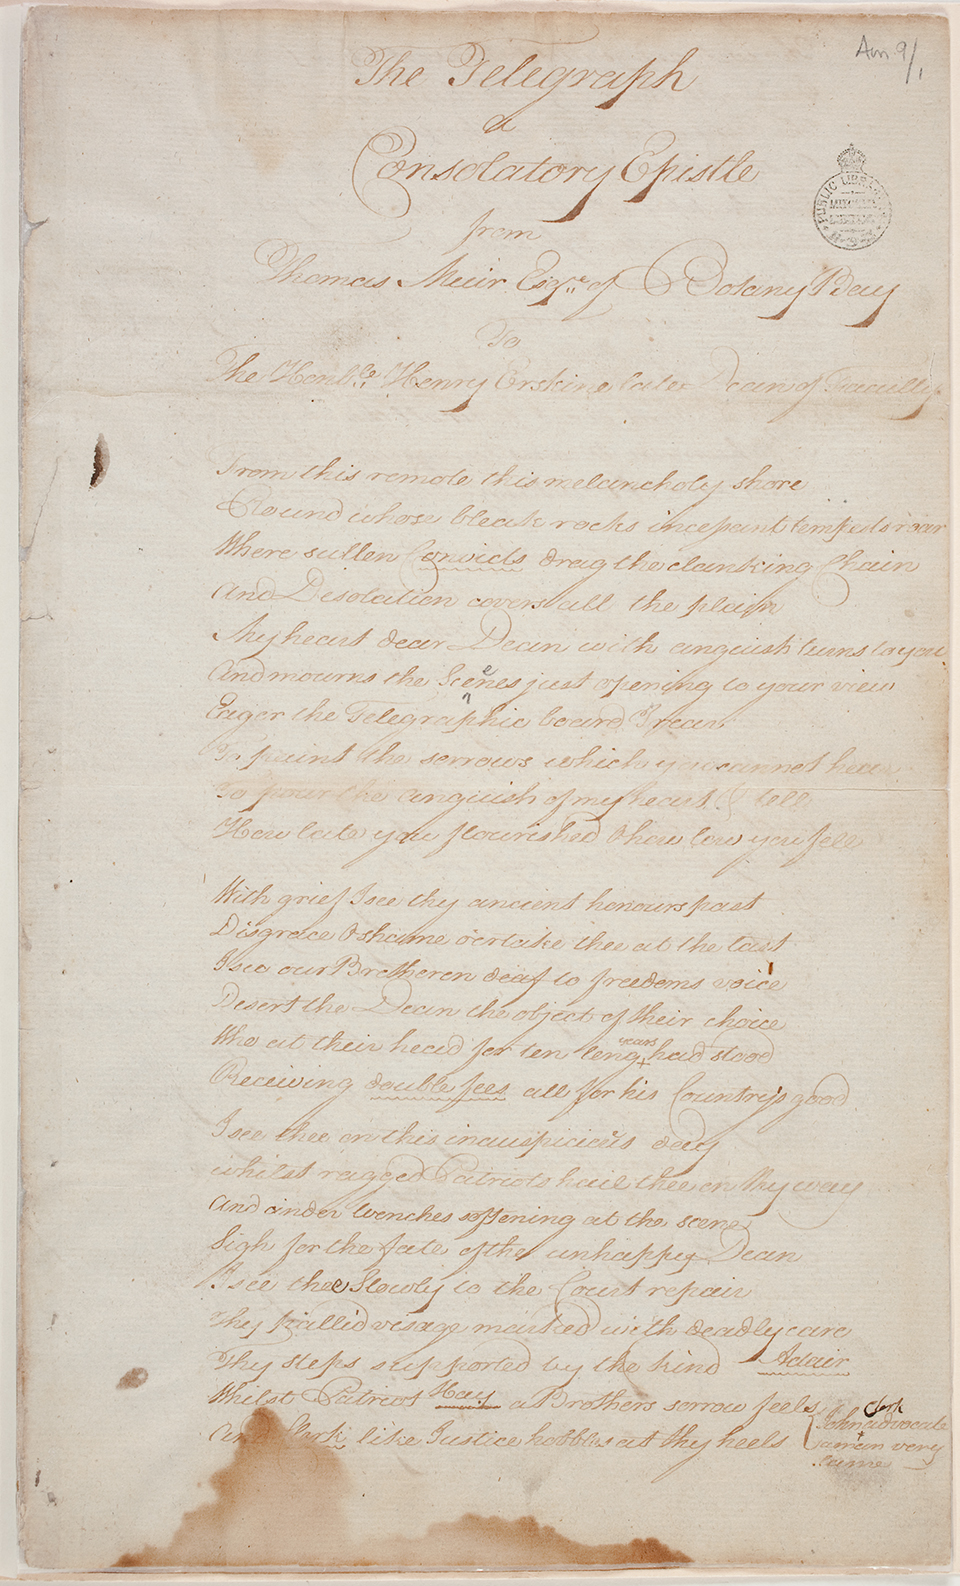 Am 9/1
The Telegraph
a
Consolatory Epistle
from
Thomas Muir Esqre. of Botany Bay
To
The Honble. Henry Erskine late Dean of Faculty
PUBLIC LIBRARY
From this remote this melancholy shore
Round whose bleak rocks incessant tempests roar
Where sullen Convicts drag the clanking Chain
And Desolation covers all the plain
My heart dear Dean with anguish turns to you
And mourns the Scenes just opening to your view
Eager the Telegraphic board I rear
To paint the sorrows which you cannot hear
To pour the anguish of my heart & tell
How late you flourished & how low you fell
With grief I see thy ancient honours past
Disgrace & shame o'ertake thee at the last
I see our Bretheren deaf to freedoms voice
Desert the Dean the object of their choice
Who at their head for ten long years had stood
Receiving double fees all for his Countrys good
I see thee on this inauspicious day
whilst ragged Patriots hail thee on thy way
And cinder wenches softening at the scene
Sigh for the fate of the unhappy Dean
I see thee Slowly to the Court repair
Thy pallid visage marked with deadly care
Thy steps supported by the kind Adair
Whilst Patriot Hay a Brothers sorrow feels
And Clerk like Justice hobbles at thy heels
John Clerk advocate
a man very
lame